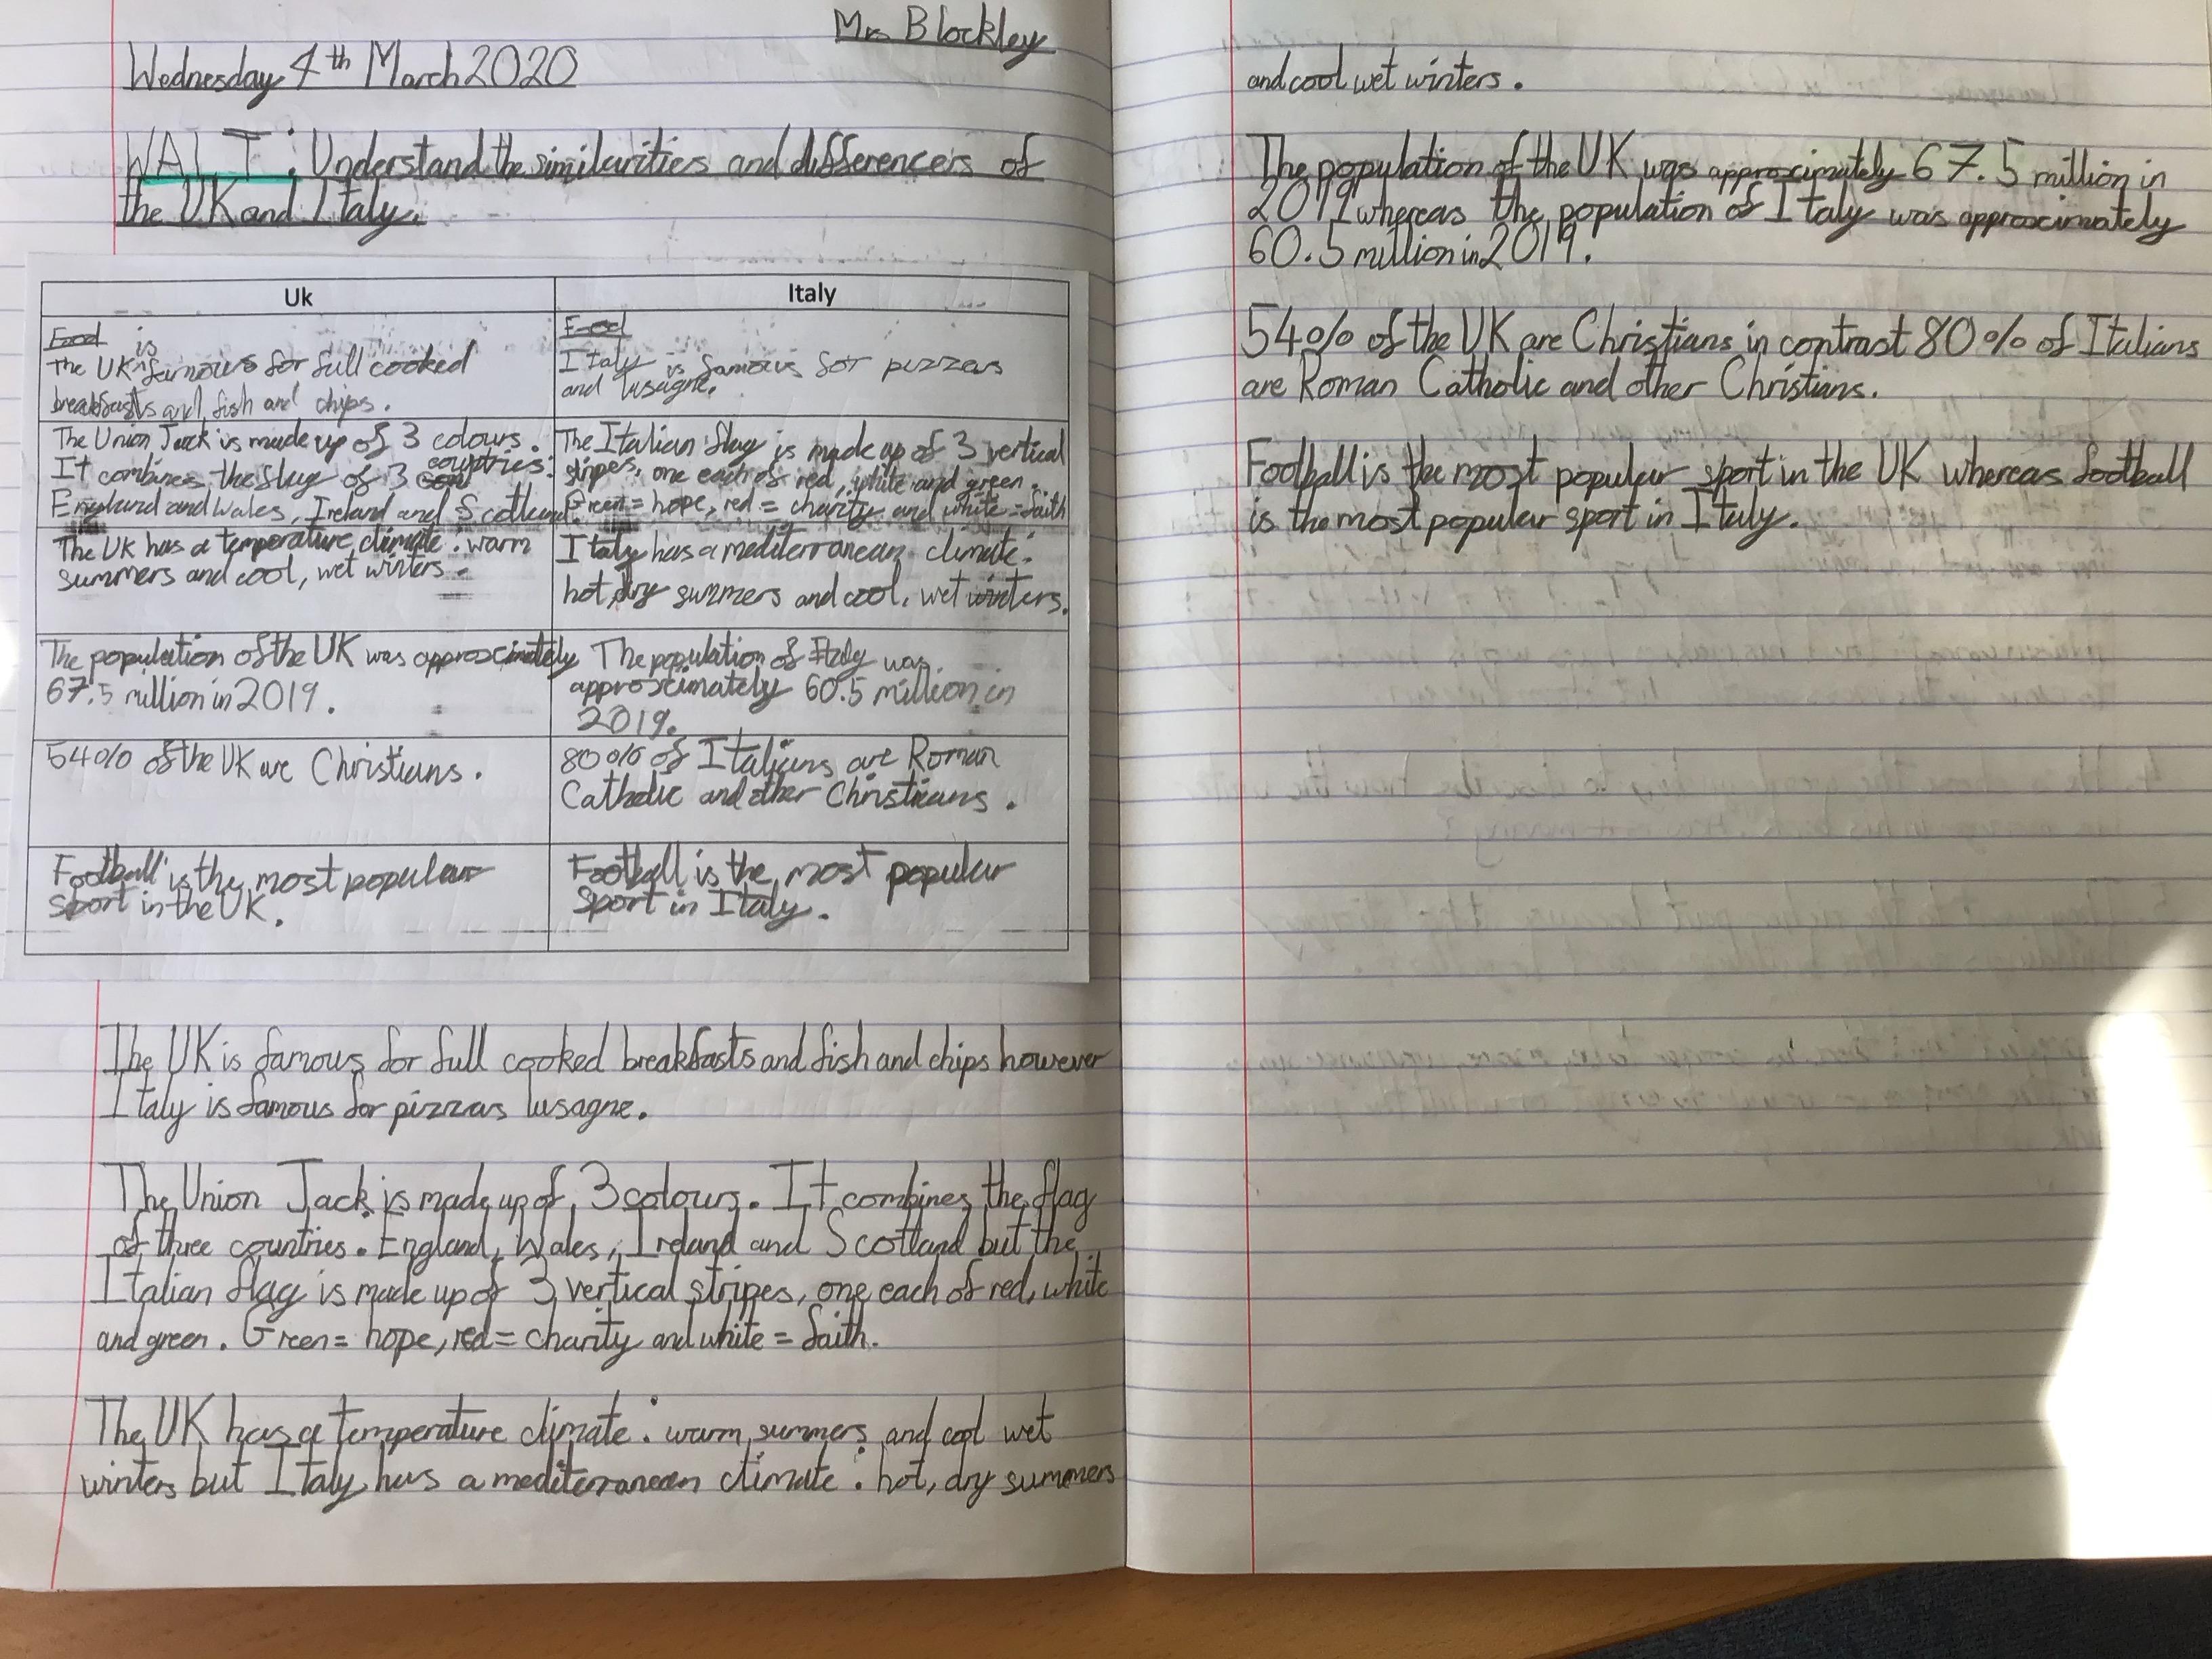 Mrs Blockley
Wednesday 4th March 2020
WALT: Understand the similarities and differencers of
the UK and Italy.
Uk
Italy
Food
The UK is famous for full cooked
breakfasts and fish and chips.
Food
Italy is famous for pizzas
and lasagne.
The Union Jack is made up of 3 colours.
It combines the flag of 3 countries:
England and Wales, Ireland and Scotland.
The Italian flag is made up of 3 vertical
stripes, one each of red, white and green.
Green = hope, red = charity and white = faith
The UK has a temperature climate: warm
summers and cool, wet winters.
Italy has a mediterranean climate:
hot, dry summers and cool, wet winters.
The population of the UK was approximately
67.5 million in 2019.
The population of Italy was
approximately 60.5 million in
2019.
54% of the UK are Christians.
80% of Italians are Roman
Catholic and other Christians.
Football is the most popular
sport in the UK.
Football is the most popular
sport in Italy.
The UK is famous for full cooked breakfasts and fish and chips however
Italy is famous for pizzas lasagne.
The Union Jack is made up of 3 colours. It combines the flag
of three countries. England, Wales, Ireland and Scotland but the
Italian flag is made up of 3 vertical stripes, one each of red, white
and green. Green = hope, red = charity and white = faith.
The UK has a temperature climate: warm summers and cool wet
winters but Italy has a mediterranean climate: hot, dry summers
and cool wet winters.
The population of the UK was approximately 67.5 million in
2019 whereas the population of Italy was approximately
60.5 million in 2019.
54% of the UK are Christians in contrast 80% of Italians
are Roman Catholic and other Christians.
Football is the most popular sport in the UK whereas football
is the most popular sport in Italy.